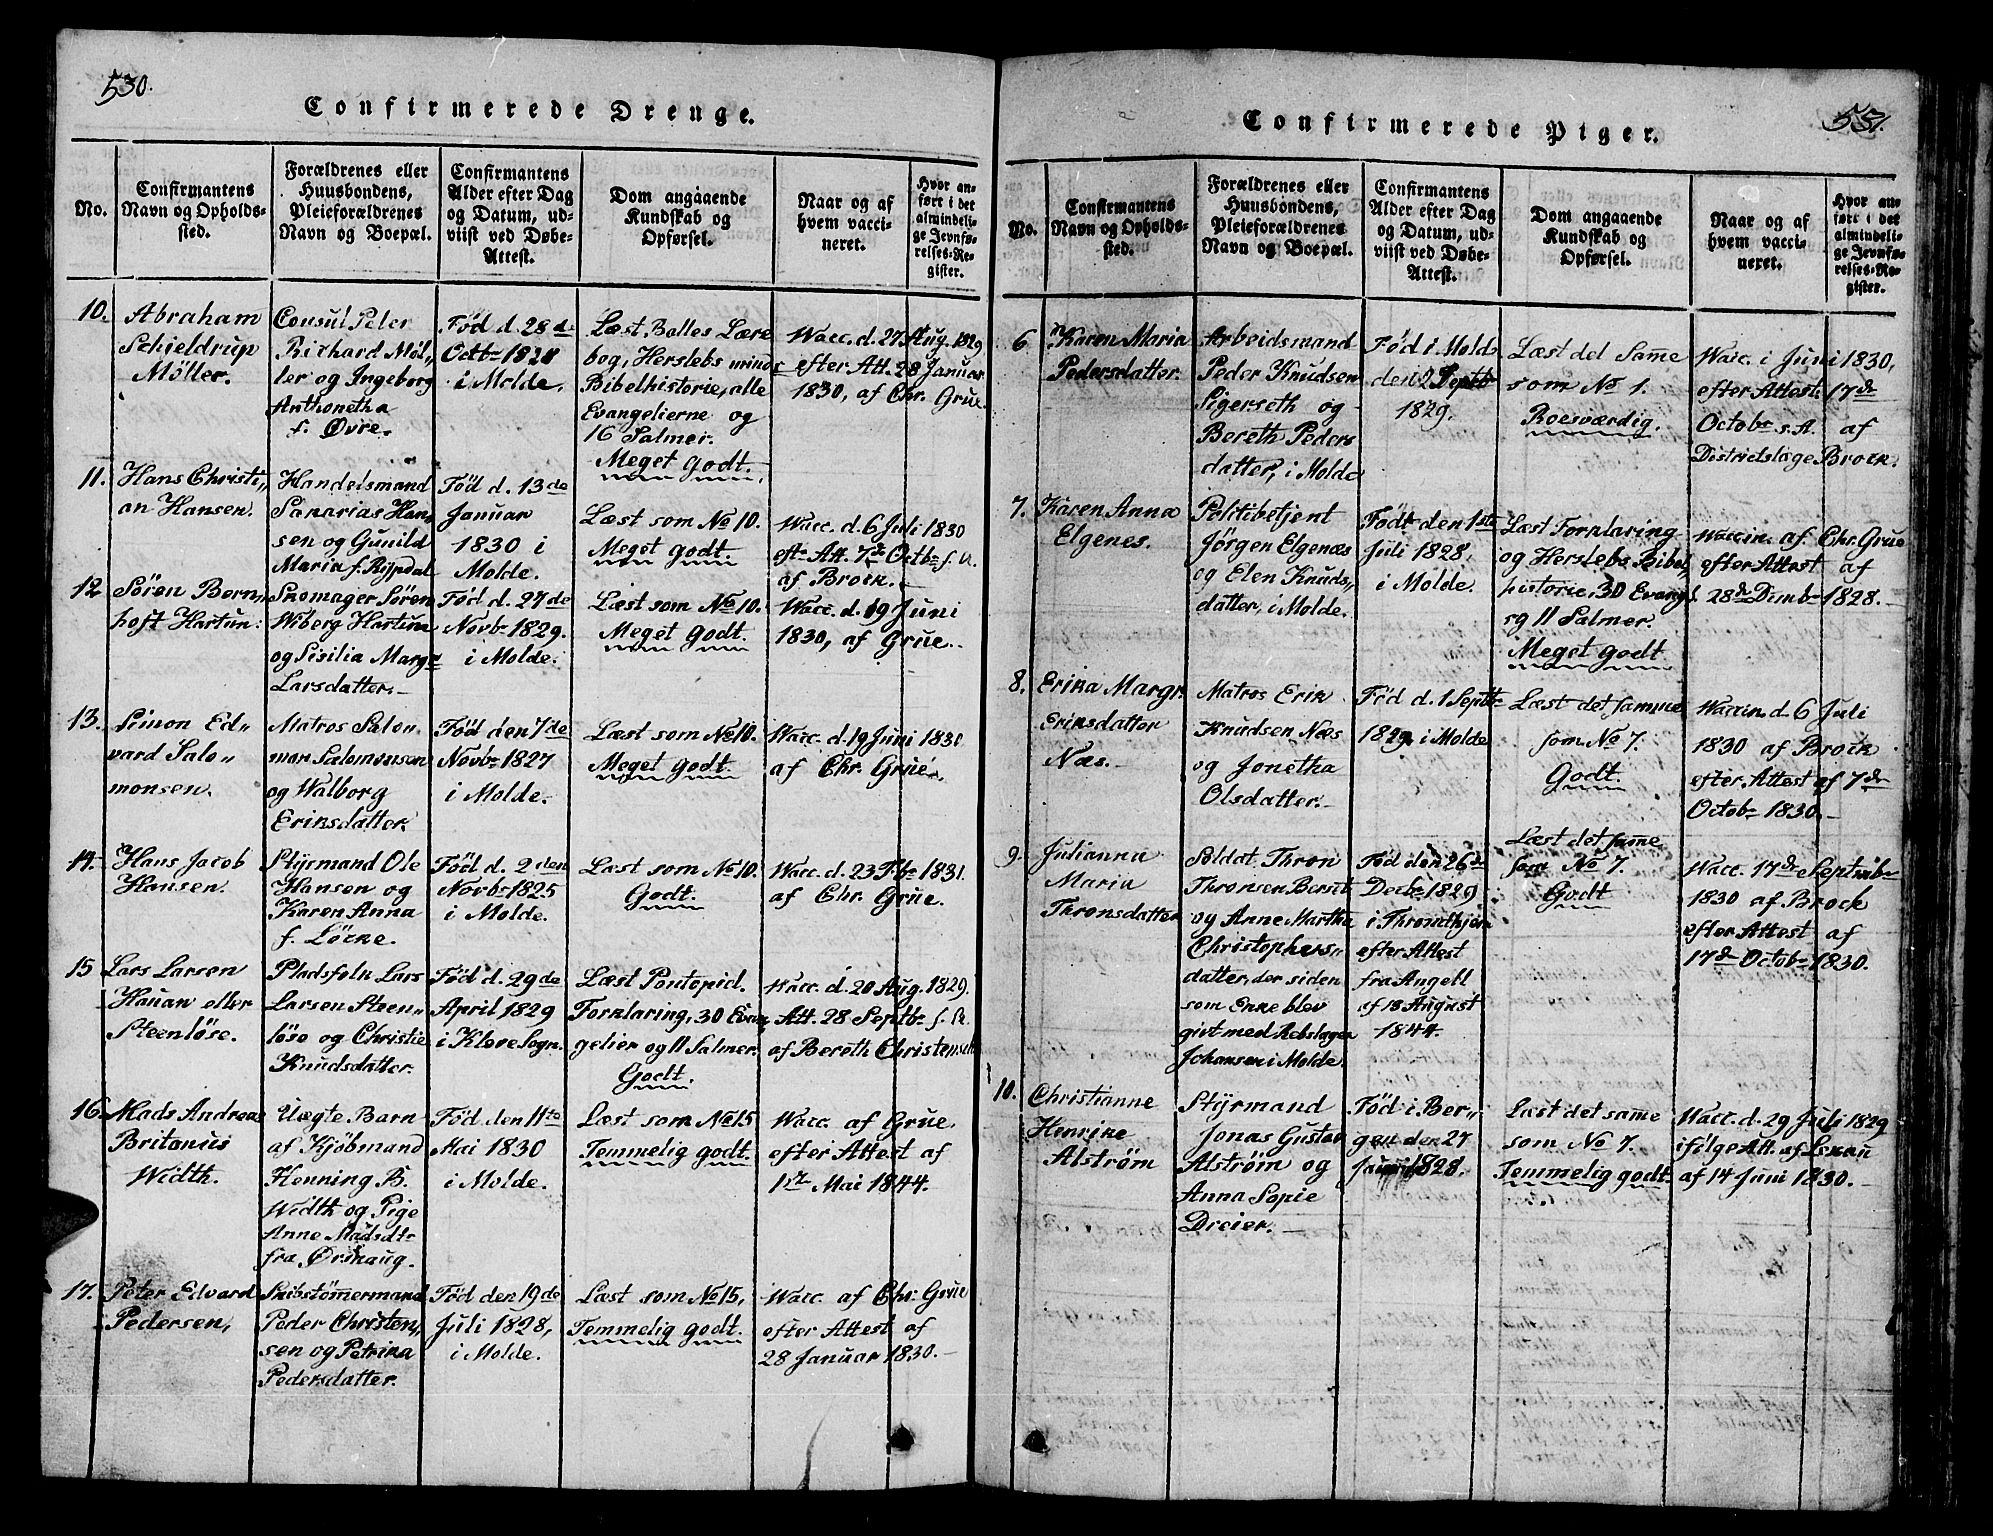 530.
Confirmerede Drenge.
No.
Confirmantens
Navn og Opholds-
sted.
Forældrenes eller
Huusbondens,
Pleieforældrenes
Navn og Boepæl.
Confirmantens
Alder efter Dag
og Datum, ud-
viist ved Døbe-
Attest.
Dom angaaende
Kundskab og
Opførsel.
Naar og af
hvem vacci-
neret.
Hvor an-
ført i det
almindeli-
ge Jevnfø-
relses-Re-
gister.
10.
Abraham
Schieldrup
Möller.
Consul Peter
Richard Möl„
ler og Ingeborg
Anthonetha
f. Øvre.
Fød d. 28de
Octbr 1828
i Molde.
Læst Balles Lære
bog, Herslebs minds
Bibelhistorie, alle
Evangelierne og
16 Salmer.
Meget godt.
Wacc. d. 27 Aug. 1829
efter Att. 28 Januar
1830, af Chr. Grue.
11.
Hans Christi„
an Hansen.
Handelsmand
Sanarias Han„
sen og Gunild
Maria f. Rypdal
Fød d. 13de
Januar
1830 i
Molde.
Læst som No 10.
Meget godt
Wacc. d. 6 Juli 1830
eftr Att. 7de Octbr s. A.
af Brock.
12
Sören Bern„
hoft Hartun:
Skomager Sören
Wiberg Hartum
og Sisilia Margr
Larsdatter.
Fød d. 27de
Novbr 1829.
i Molde.
Læst som No 10.
Meget godt.
Wacc. d. 19 Juni
1830, af Grue.
13.
Simon Ed„
vard Salo„
monsen.
Matros Salon
mon Salomonsen
og Walborg
Eriksdatter
Fød den 7de
Novbr 1827
i Molde.
Læst som No 10.
Meget godt.
Wacc. d. 19 Juni 1830
af Chr. Grue.
14.
Hans Jacob
Hansen.
Styrmand Ole
Hansen og
Karen Anna
f. Löcke.
Fød d. 2den
Novbr 1825
i Molde.
Læst som No 10.
Godt.
Wacc. d. 23 Fbr 1831.
af Chr. Grue.
15
Lars Larsen
Hauan eller
Steenlöse.
Pladsfolk Lars
Larsen Steen„
löse og Christie
Knudsdatter.
Fød d. 29de
April 1829
i Kleve Sogn.
Læst Pontopid.
Forklaring, 30 Evan„
gelier og 11 Salmer.
Godt.
Wacc. d. 20 Aug. 1829.
Att. 28 Septbr s. A.
af Bereth Christensdt
16.
Mads Andreas
Britanus
Width.
Uægte Barn
af Kjöbmand
Henning B.
Width og Pige
Anne Madsdtr
fra Örshaug.
Fød den 11te
Mai 1830
i Molde.
Læst som No 15
Temmelig godt.
Wacc. af Grue
efter Attest af
11te Mai 1844.
17.
Peter Edvard
Pedersen,
Skibstömermand
Peder Christen„
sen og Petrika
Pedersdatter.
Fød den 19de
Juli 1828,
i Molde.
Læst som No 15,
Temmelig godt.
Wacc. af Chr. Grue
efter Attest af
28 Januar 1830.
531.
Confirmerede Piger.
No.
Confirmantens
Navn og Opholds-
sted.
Forældrenes eller
Huusbondens,
Pleieforældrenes
Navn og Boepæl.
Confirmantens
Alder efter Dag
og Datum, ud-
viist ved Døbe-
Attest.
Dom angaaende
Kundskab og
Opførsel.
Naar og af
hvem vacci-
neret.
Hvor an-
ført i det
almindeli-
ge Jevnfø-
relses-Re-
gister.
6
Karen Maria
Pedersdatter.
Arbeidsmand
Peder Knudsen
Sigerseth og
Bereth Peders
datter, i Molde
Fød i Molde
den 2 Septb
1829.
Læst det Samme
som No 1.
Roesværdig.
Wacc. i Juni 1830,
efter Attest 17de
Octobr s. A. af
Districtslæge Brock.
7.
Karen Anna
Elgenes.
Politibetjent
Jörgen Elgenæs
og Elen Knuds„
datter, i Molde.
Født den 1ste
Juli 1828,
i Molde.
Læst Forklaring
og Herslebs Bibel„
historie, 30 Evangl.
og 11 Salmer.
Meget godt
Waccin. af Chr. Grue
efter Attest af
28de Dcmbr 1828.
8.
Erika Margr.
Eriksdatter
Næs.
Matros Erik
Knudsen Næs
og Jonetha
Olsdatter.
Fød d. 1 Septbr
1829 i Molde
Læst det samme
som No 7.
Godt.
Waccin. d. 6 Juli
1830 af Brock
efter Attest af 7de
Octobr 1830.
9.
Julianna
Maria
Thronsdatter
Soldat Thron
Thronsen Berset
og Anne Martha
Christophers„
datter, der siden
som Enke blev
givt med Rebslager
Johansen i Molde.
Fød den 26de
Decbr 1829
i Throndhjem
efter Attest
fra Angell
af 13 August
1844.
Læst det same
som No 7.
Godt
Wacc. 17de Septmbr
1830 af Brock
efter Attest af
17de Octobr 1830.
10.
Christianne
Henrike
Alström
Styrmand
Jonas Gustav
Alström og
Anna Sopie
Dreier.
Fød i Ber„
gen den 27
1828.
Læst det same
som No 7.
Temmelig godt.
Wacc. d. 29 Juli 1829
ifölge Att. af
af 14 Juni 1830.